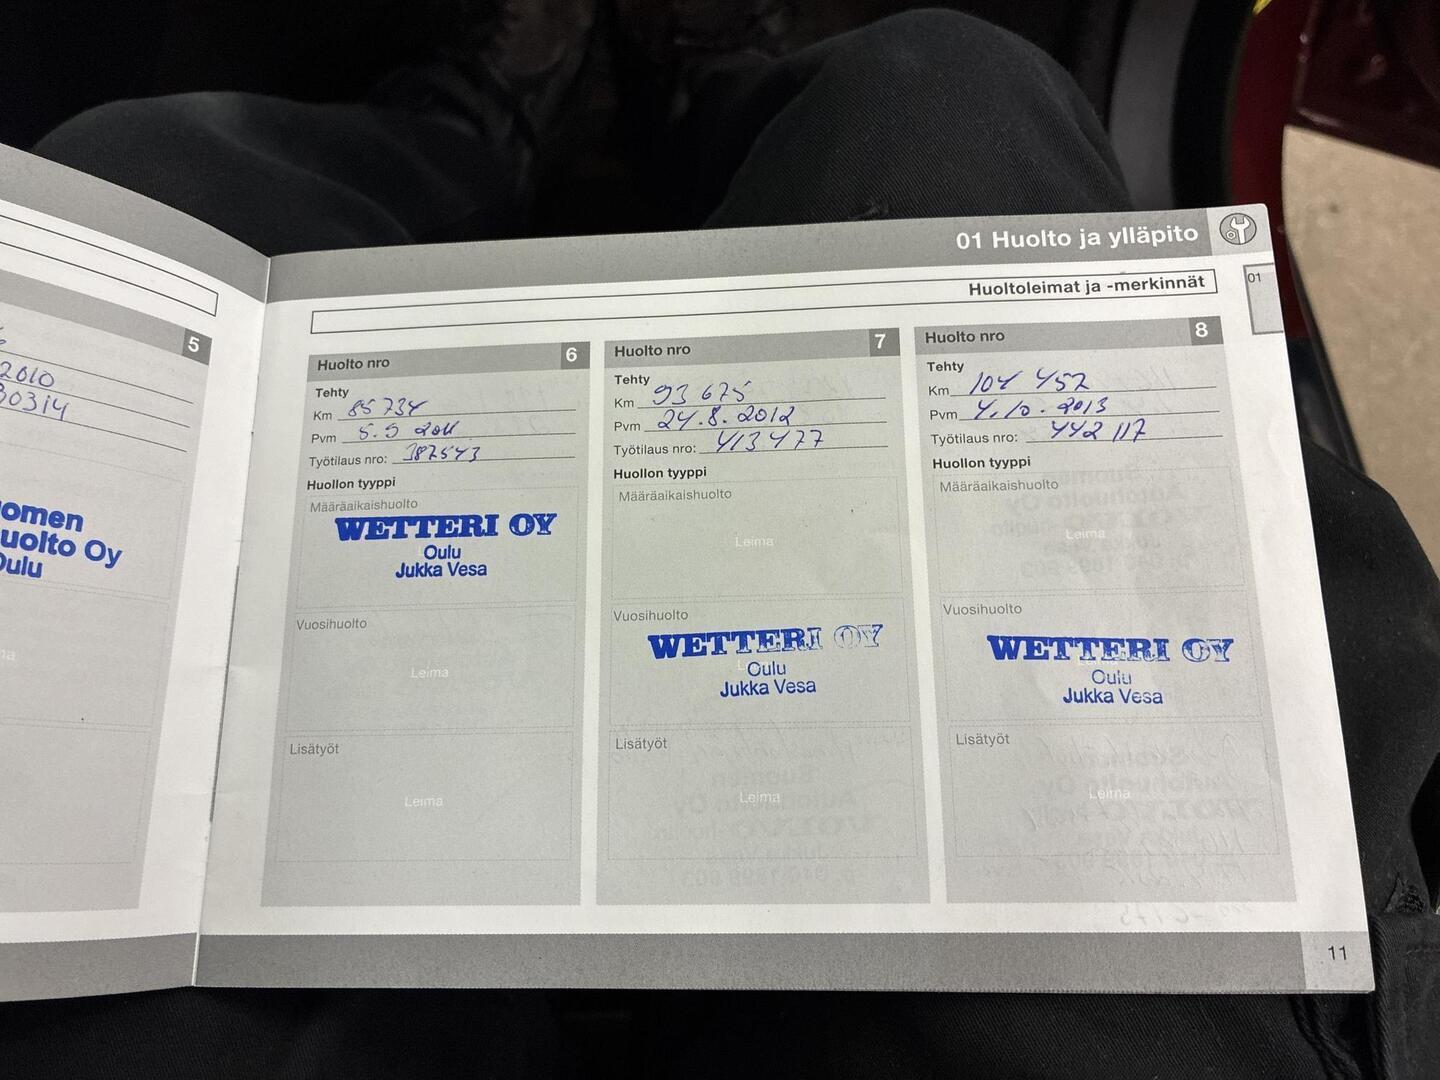 01 Huolto ja ylläpito
Huoltoleimat ja -merkinnät
01
5
2010
30314
omen
uolto Oy
Oulu
Huolto nro 6
Tehty
Km 85 734
Pvm 5.9 2011
Työtilaus nro: 387543
Huollon tyyppi
Määräaikaishuolto
WETTERI OY
Oulu
Jukka Vesa
Vuosihuolto
Leima
Lisätyöt
Leima
Huolto nro 7
Tehty
Km 93 675
Pvm 24.8.2012
Työtilaus nro: 413477
Huollon tyyppi
Määräaikaishuolto
Leima
Vuosihuolto
WETTERI OY
Oulu
Jukka Vesa
Lisätyöt
Leima
Huolto nro 8
Tehty
Km 104 452
Pvm 4.10.2013
Työtilaus nro: 442 117
Huollon tyyppi
Määräaikaishuolto
Leima
Vuosihuolto
WETTERI OY
Oulu
Jukka Vesa
Lisätyöt
Leima
11